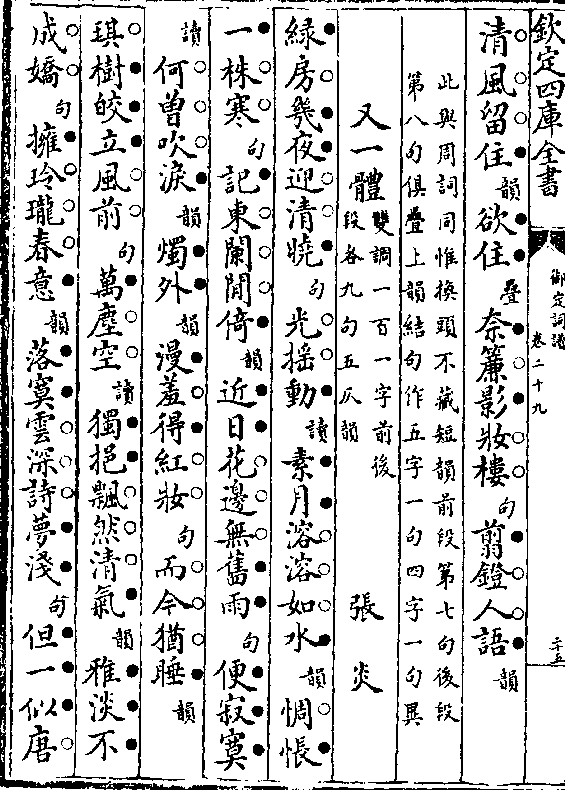 欽定四庫全書
御定詞譜
卷二十九
二十五
清風留住韻欲住叠奈簾影妝樓句翦鐙人語韻
此與周詞同惟換頭不藏短韻前段第七句後段
第八句俱叠上韻結句作五字一句四字一句異
又一體雙調一百一字前後段各九句五仄韻
張炎
緑房幾夜迎清曉句光搖動讀素月溶溶如水韻惆悵
一株寒句記東闌閒倚韻近日花邊無舊雨句便寂寞
讀何曾吹淚韻燭外韻漫羞得紅妝句而今猶睡韻
琪樹皎立風前句萬塵空讀獨挹飄然清氣韻雅淡不
成嬌句擁玲瓏春意韻落寞雲深詩夢淺句但一似唐